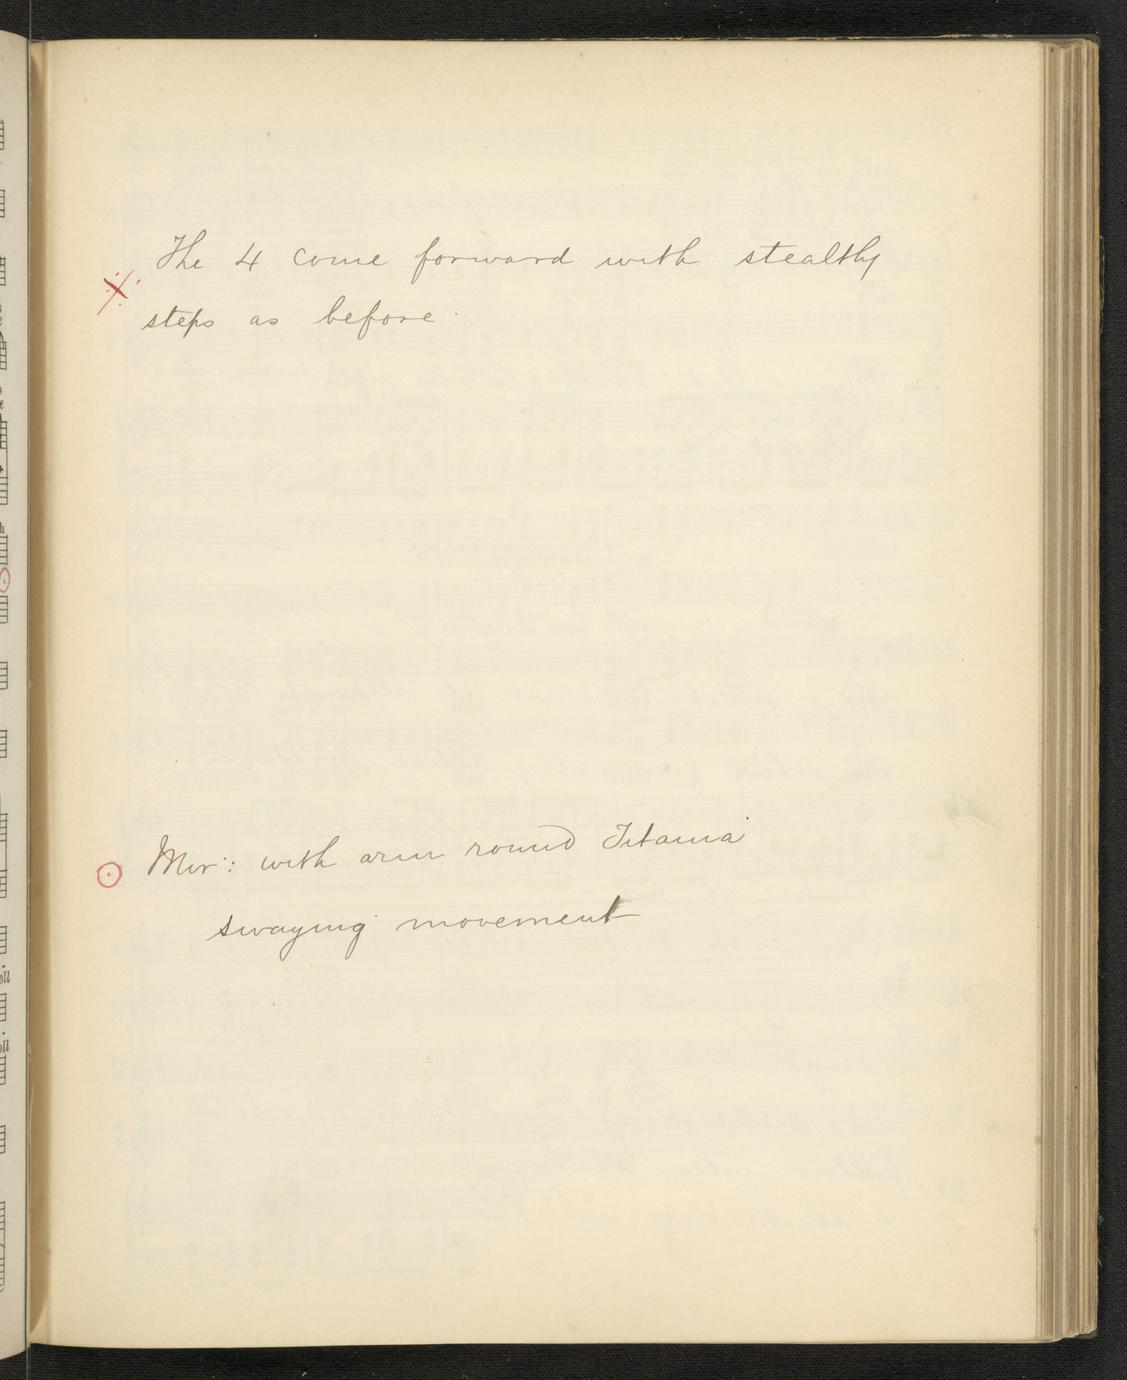 The 4 come forward with stealthy
steps as before.
Mir: with arm round Titania
swaying movement